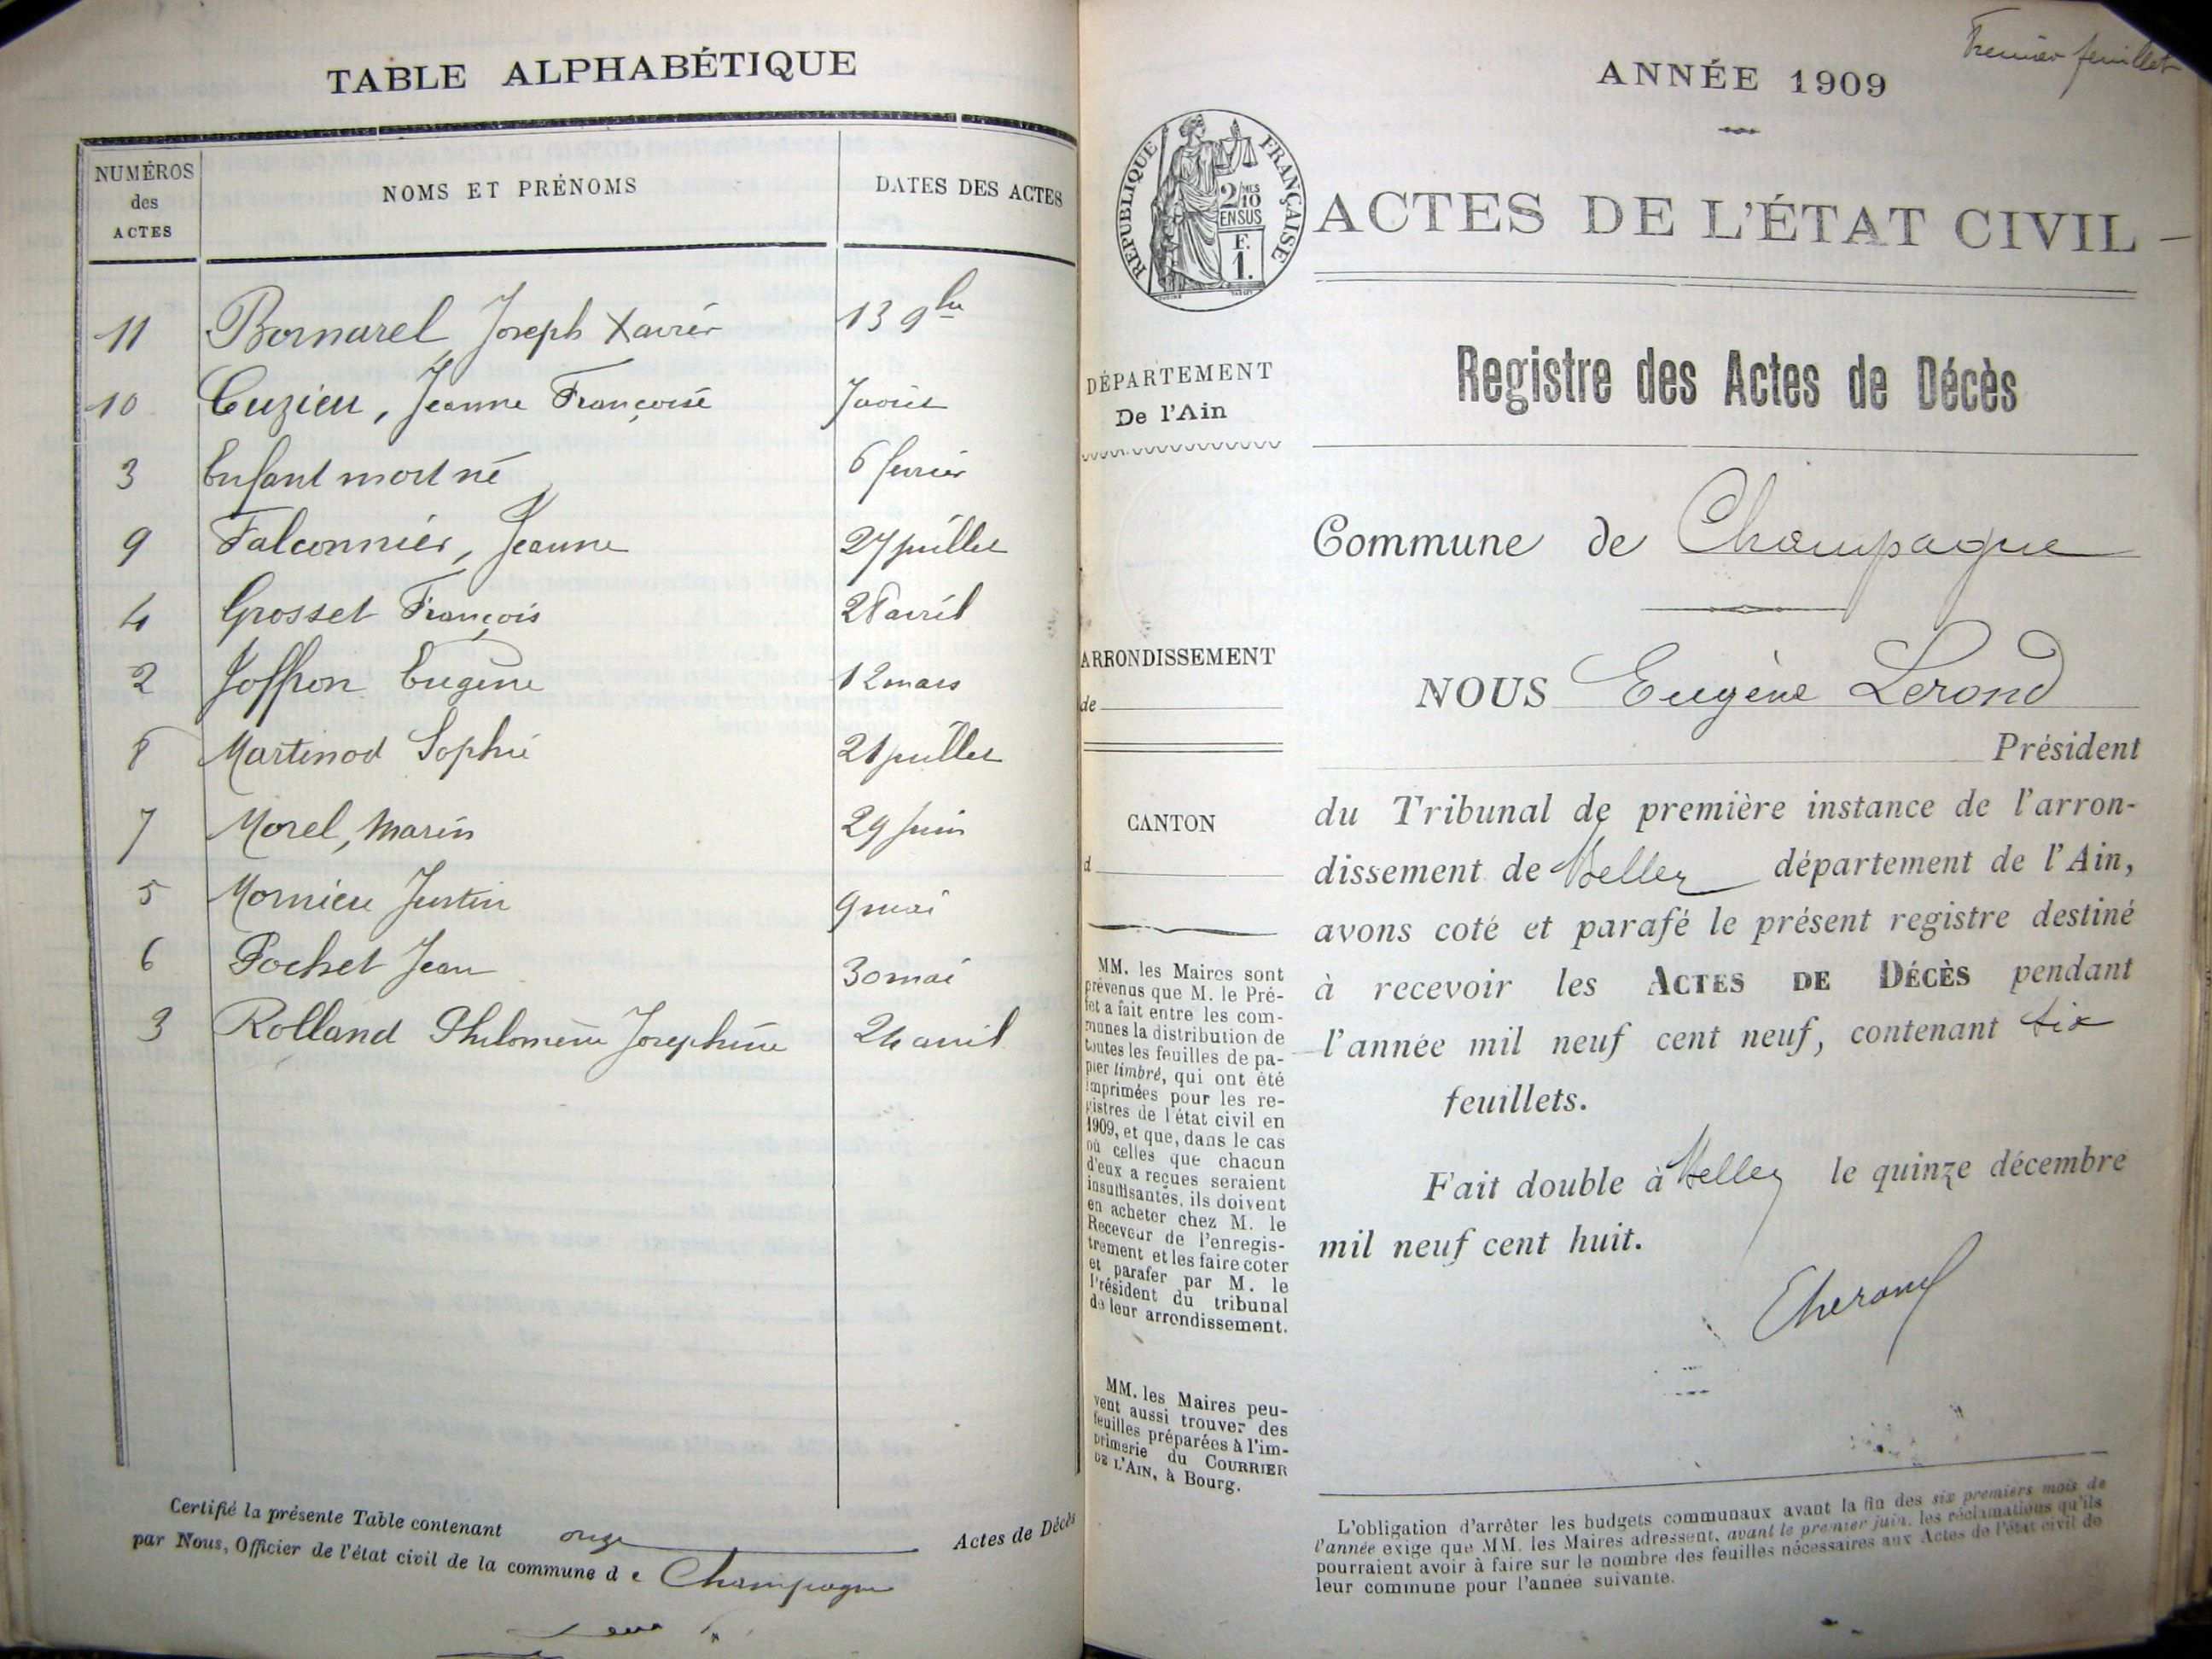 TABLE ALPHABÉTIQUE
NUMÉROS des ACTES
NOMS ET PRÉNOMS
DATES DES ACTES
11 Bornarel Joseph Xavier 13 9bre
10 Cuzieu, Jeanne Françoise 7 août
3 Enfant mort né 6 février
9 Falconnier, Jeanne 27 juillet
4 Grosset François 28 avril
2 Joffron Eugène 12 mars
8 Martinod Sophie 21 juillet
7 Morel, Marin 29 juin
5 Mornieu Justin 9 mai
6 Pochet Jean 30 mai
3 Rolland Philomène Josephine 24 avril
Certifié la présente Table contenant onze Actes de Décès
par Nous, Officier de l'état civil de la commune d e Champagne
Premier feuillet
ANNÉE 1909
RÉPUBLIQUE FRANÇAISE
2/10 MES
EN SUS
F.
1.
ACTES DE L'ÉTAT CIVIL
DÉPARTEMENT
De l'Ain
Registre des Actes de Décès
Commune de Champagne
ARRONDISSEMENT
de
NOUS Eugène Lerond
Président
CANTON
d
du Tribunal de première instance de l'arron-
dissement de Belley département de l'Ain,
avons coté et parafé le présent registre destiné
à recevoir les ACTES DE DÉCÈS pendant
l'année mil neuf cent neuf, contenant six
feuillets.
Fait double à Belley le quinze décembre
mil neuf cent huit.
MM. les Maires sont
prévenus que M. le Pré-
fet a fait entre les com-
munes la distribution de
toutes les feuilles de pa-
pier timbré, qui ont été
imprimées pour les re-
gistres de l'état civil en
1909, et que, dans le cas
où celles que chacun
d'eux a reçues seraient
insuffisantes, ils doivent
en acheter chez M. le
Receveur de l'enregis-
trement et les faire coter
et parafer par M. le
Président du tribunal
de leur arrondissement.
MM. les Maires peu-
vent aussi trouver des
feuilles préparées à l'im-
primerie du COURRIER
DE L'AIN, à Bourg.
L'obligation d'arrêter les budgets communaux avant la fin des six premiers mois de
l'année exige que MM. les Maires adressent, avant le premier juin, les réclamations qu'ils
pourraient avoir à faire sur le nombre des feuilles nécessaires aux Actes de l'état civil de
leur commune pour l'année suivante.